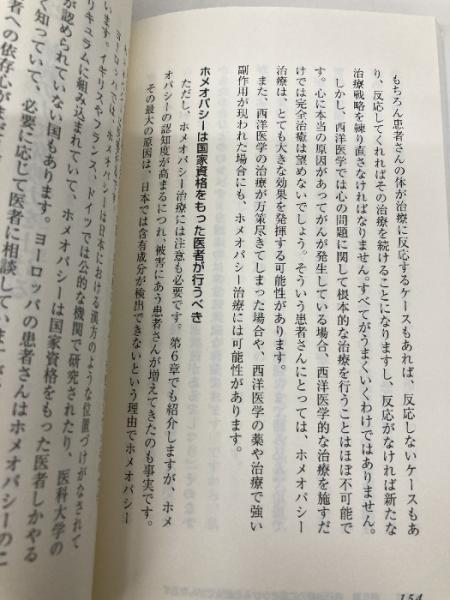 もちろん患者さんの体が治療に反応するケースもあれば、反応しないケースもあ
り、反応してくれればその治療を続けることになりますし、反応がなければ新たな
治療戦略を練り直さなければなりません。すべてがうまくいくわけではありません。
しかし、西洋医学では心の問題に関して根本的な治療を行うことはほぼ不可能で
す。心に本当の原因があってがんが発生している場合、西洋医学的な治療を施すだ
けでは完全治癒は望めないでしょう。そういう患者さんにとっては、ホメオパシー
治療は、とても大きな効果を発揮する可能性があります。
また、西洋医学の治療が万策尽きてしまった場合や、西洋医学の薬や治療で強い
副作用が現われた場合にも、ホメオパシー治療には可能性があります。
ホメオパシーは国家資格をもった医者が行うべき
ただし、ホメオパシー治療には注意も必要です。第6章でも紹介しますが、ホメ
オパシーの認知度が高まるにつれ、被害にあう患者さんが増えてきたのも事実です。
その最大の原因は、日本では含有成分が検出できないという理由でホメオパシー
ヨーロッパでは、ホメオパシーは日本における漢方のような位置づけがなされて
います。イギリスやフランス、ドイツでは公的な機関で研究されたり、医科大学の
リキュラムに組み込まれていて、ホメオパシーは国家資格をもった医者しかやる
が認められていない国もあります。ヨーロッパの患者さんはホメオパシーのこ
く知っていて、必要に応じて医者に相談しています
者への依存心が
154